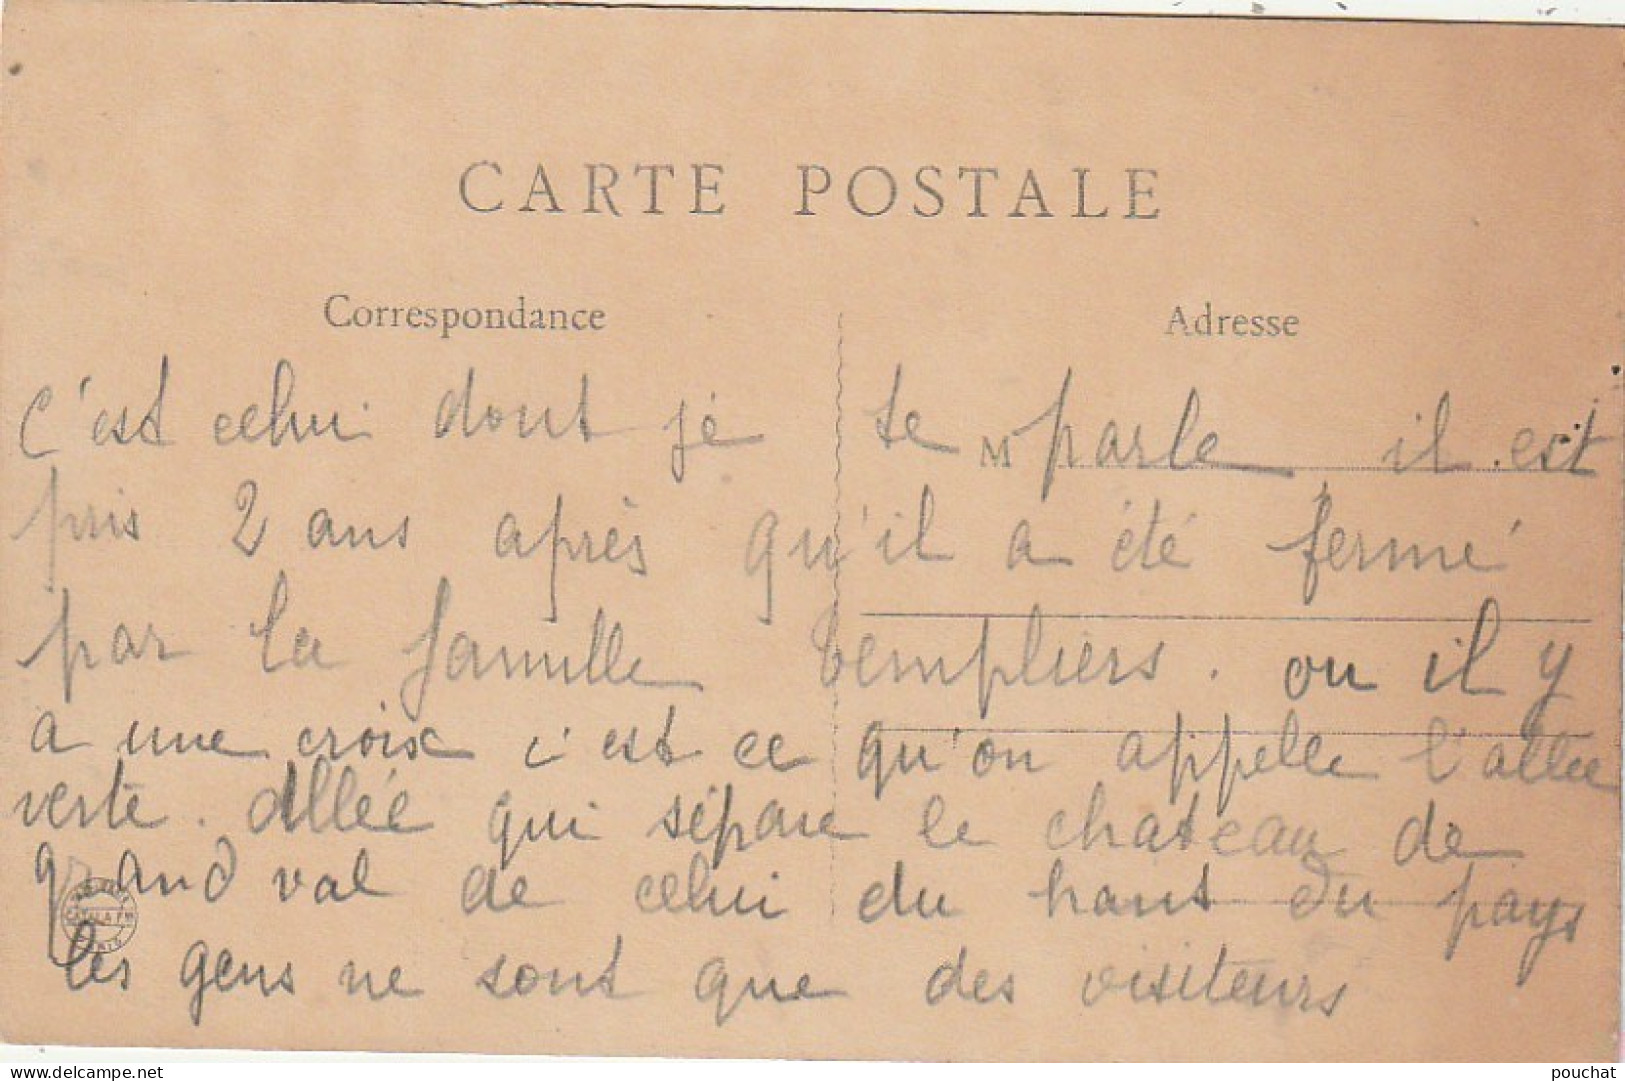 CARTE POSTALE
Correspondance
Adresse
M
c'est celui dont je te parle il est
pris 2 ans après qu'il a été fermé
par la famille templiers. ou il y
a une croix c'est ce qu'on appelle l'allée
verte. Allée qui sépare le chateau de
grand val de celui du haut du pays
les gens ne sont que des visiteurs
CATALA FRES
PARIS
www.delcampe.net
pouchat